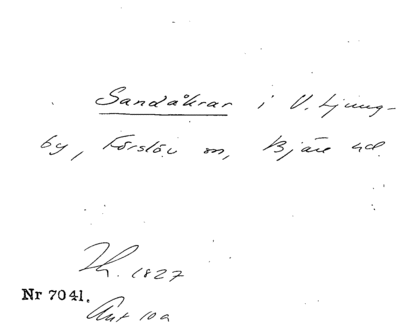 Sandåkrar i V. Ljung-
by, Förslöv sn, Bjäre hd.
Lh. 1827
Nr 7041.
Ant 10a